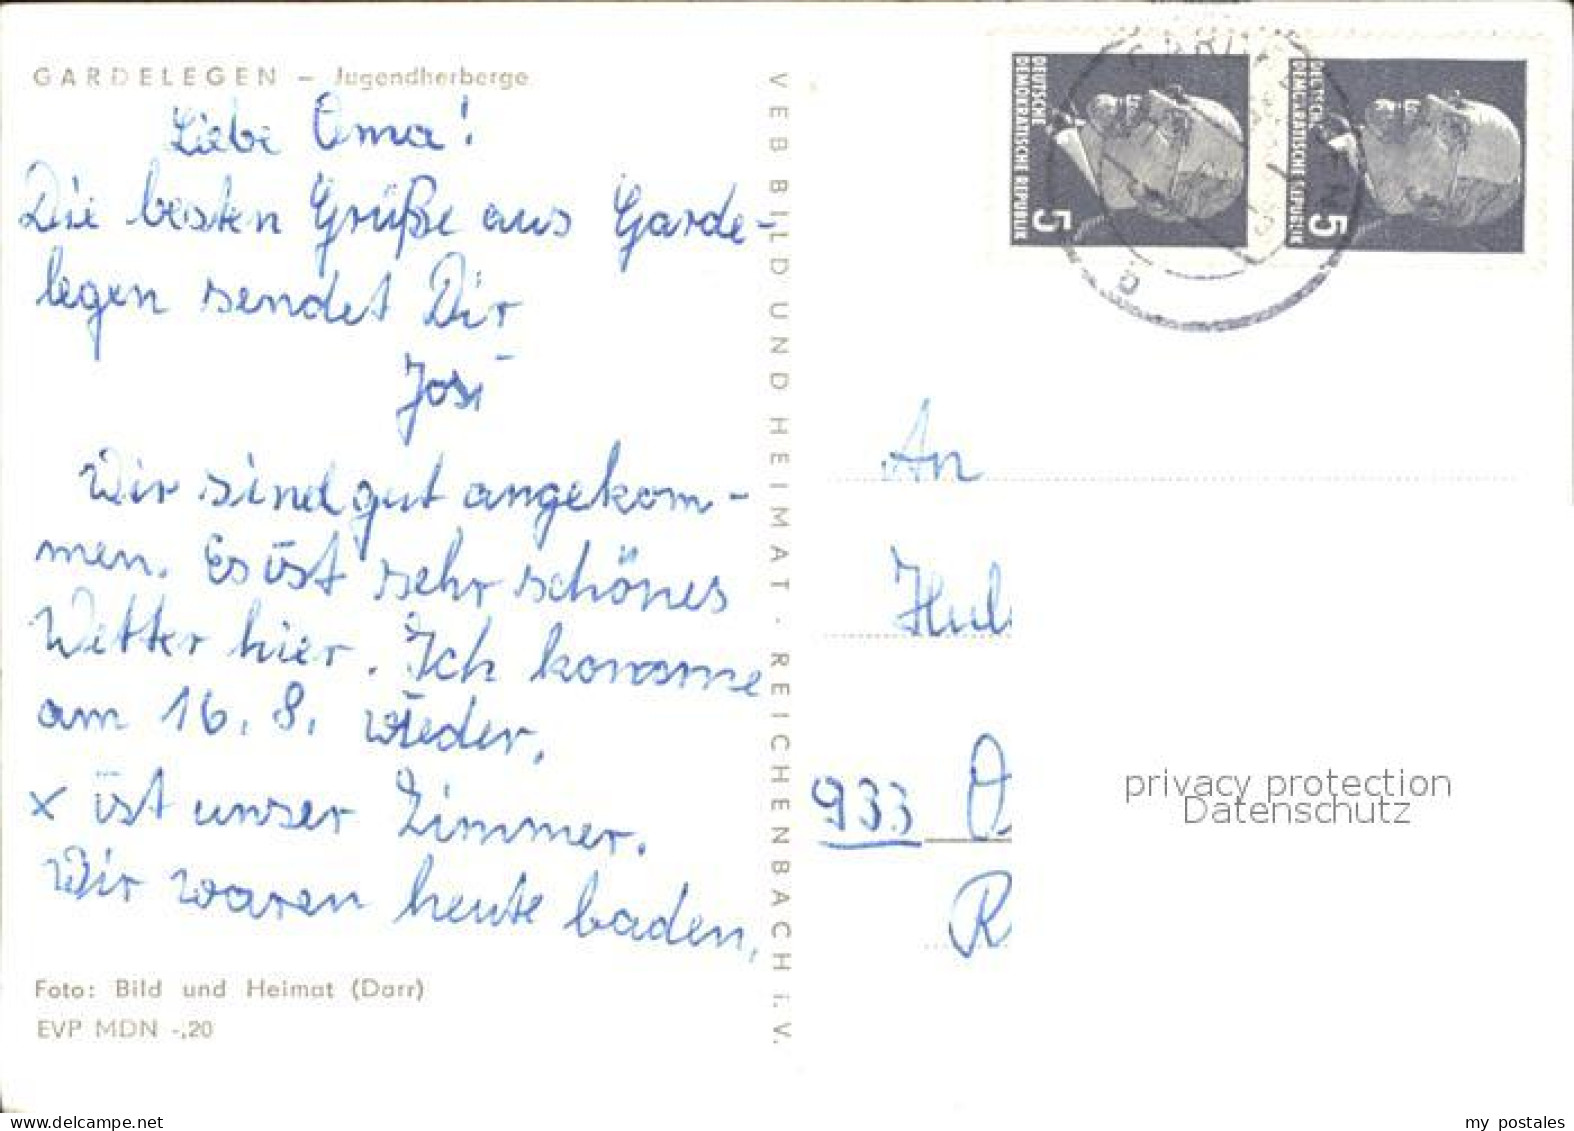 GARDELEGEN – Jugendherberge
Liebe Oma!
Die besten Grüße aus Garde-
legen sendet Dir
Josi
Wir sind gut angekom-
men. Es ist sehr schönes
Wetter hier. Ich komme
am 16. 8. wieder.
x ist unser Zimmer.
Wir waren heute baden.
Foto: Bild und Heimat (Darr)
EVP MDN -,20
VEB BILD UND HEIMAT · REICHENBACH i. V.
DEUTSCHE
DEMOKRATISCHE REPUBLIK
5
DEUTSCHE
DEMOKRATISCHE REPUBLIK
5
a
An
933
R
privacy protection
Datenschutz
my postales
www.delcampe.net